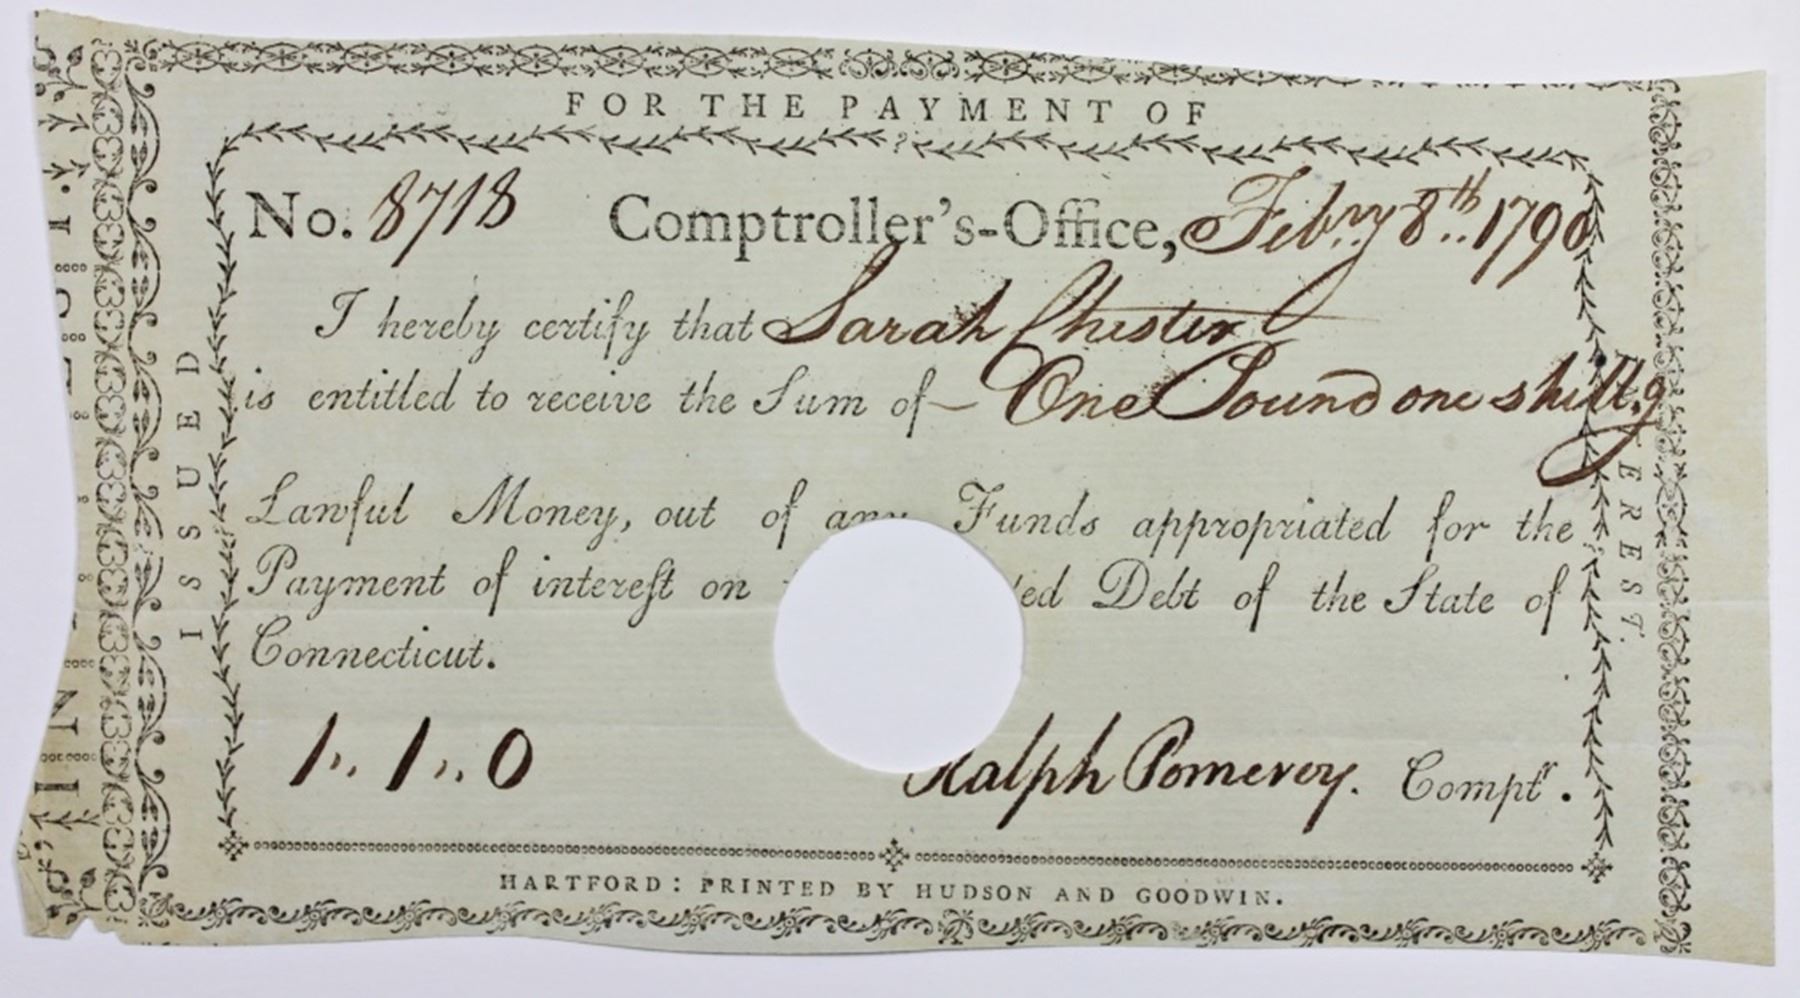 FOR THE PAYMENT OF
No. 8718 Comptroller's-Office, Febry 8th 1790
I hereby certify that Sarah Chester
is entitled to receive the Sum of – One Pound one shill.g
Lawful Money, out of any Funds appropriated for the
Payment of intereſt on ed Debt of the State of
Connecticut.
1 ,, 1 ,, 0 Ralph Pomeroy. Comptr.
HARTFORD: PRINTED BY HUDSON AND GOODWIN.
ISSUED
TEREST.